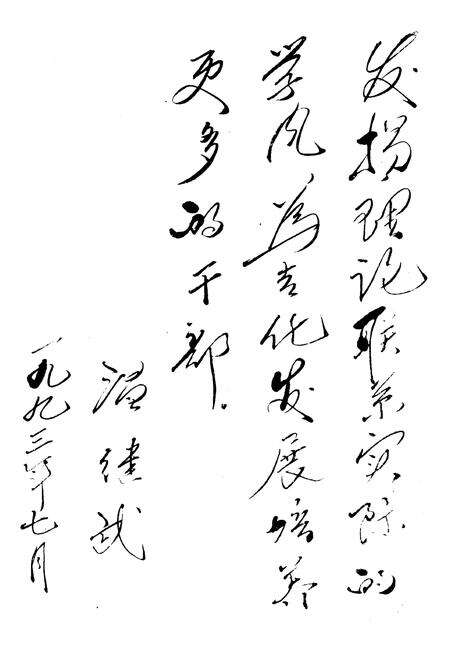 发扬理论联系实际的
学风，为吉化发展培养
更多的干部。
温继武
一九九三年七月